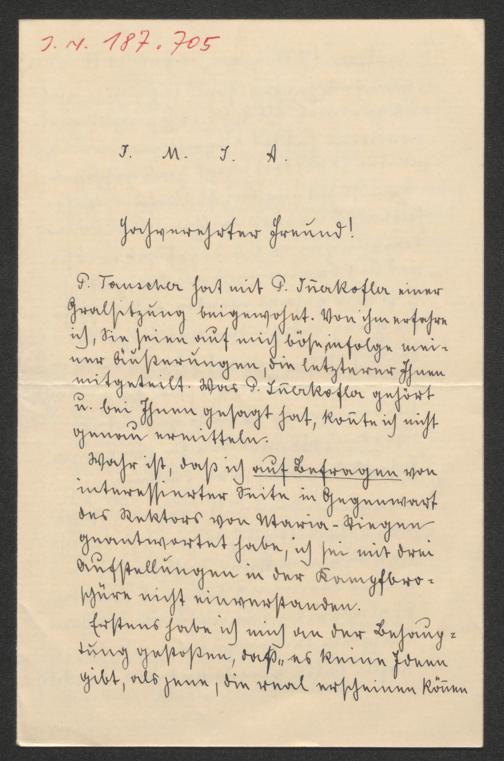 J. N. 187.705
J. M. J. A.
Hochverehrter Freund!
P. Tauscher hat mit P. einer
Gralsitzung beigewohnt. Von ihm erfahre
ich, Sie seien auf mich böse, infolge mei-
ner Äußerungen, die letzterer Ihnen
mitgeteilt. Was P. gehört
u. bei Ihnen gesagt hat, kon̄te ich nicht
genau ermitteln.
Wahr ist, daß ich auf Befragen von
interessierter Seite in Gegenwart
des Rektors von Maria-Stiegen
geantwortet habe, ich sei mit drei
Aufstellungen in der Kampfbro-
schüre nicht einverstanden.
Erstens habe ich mich an der Behaup-
tung gestoßen, daß „es keine Ideen
gibt, als jene, die real erscheinen kön̄en